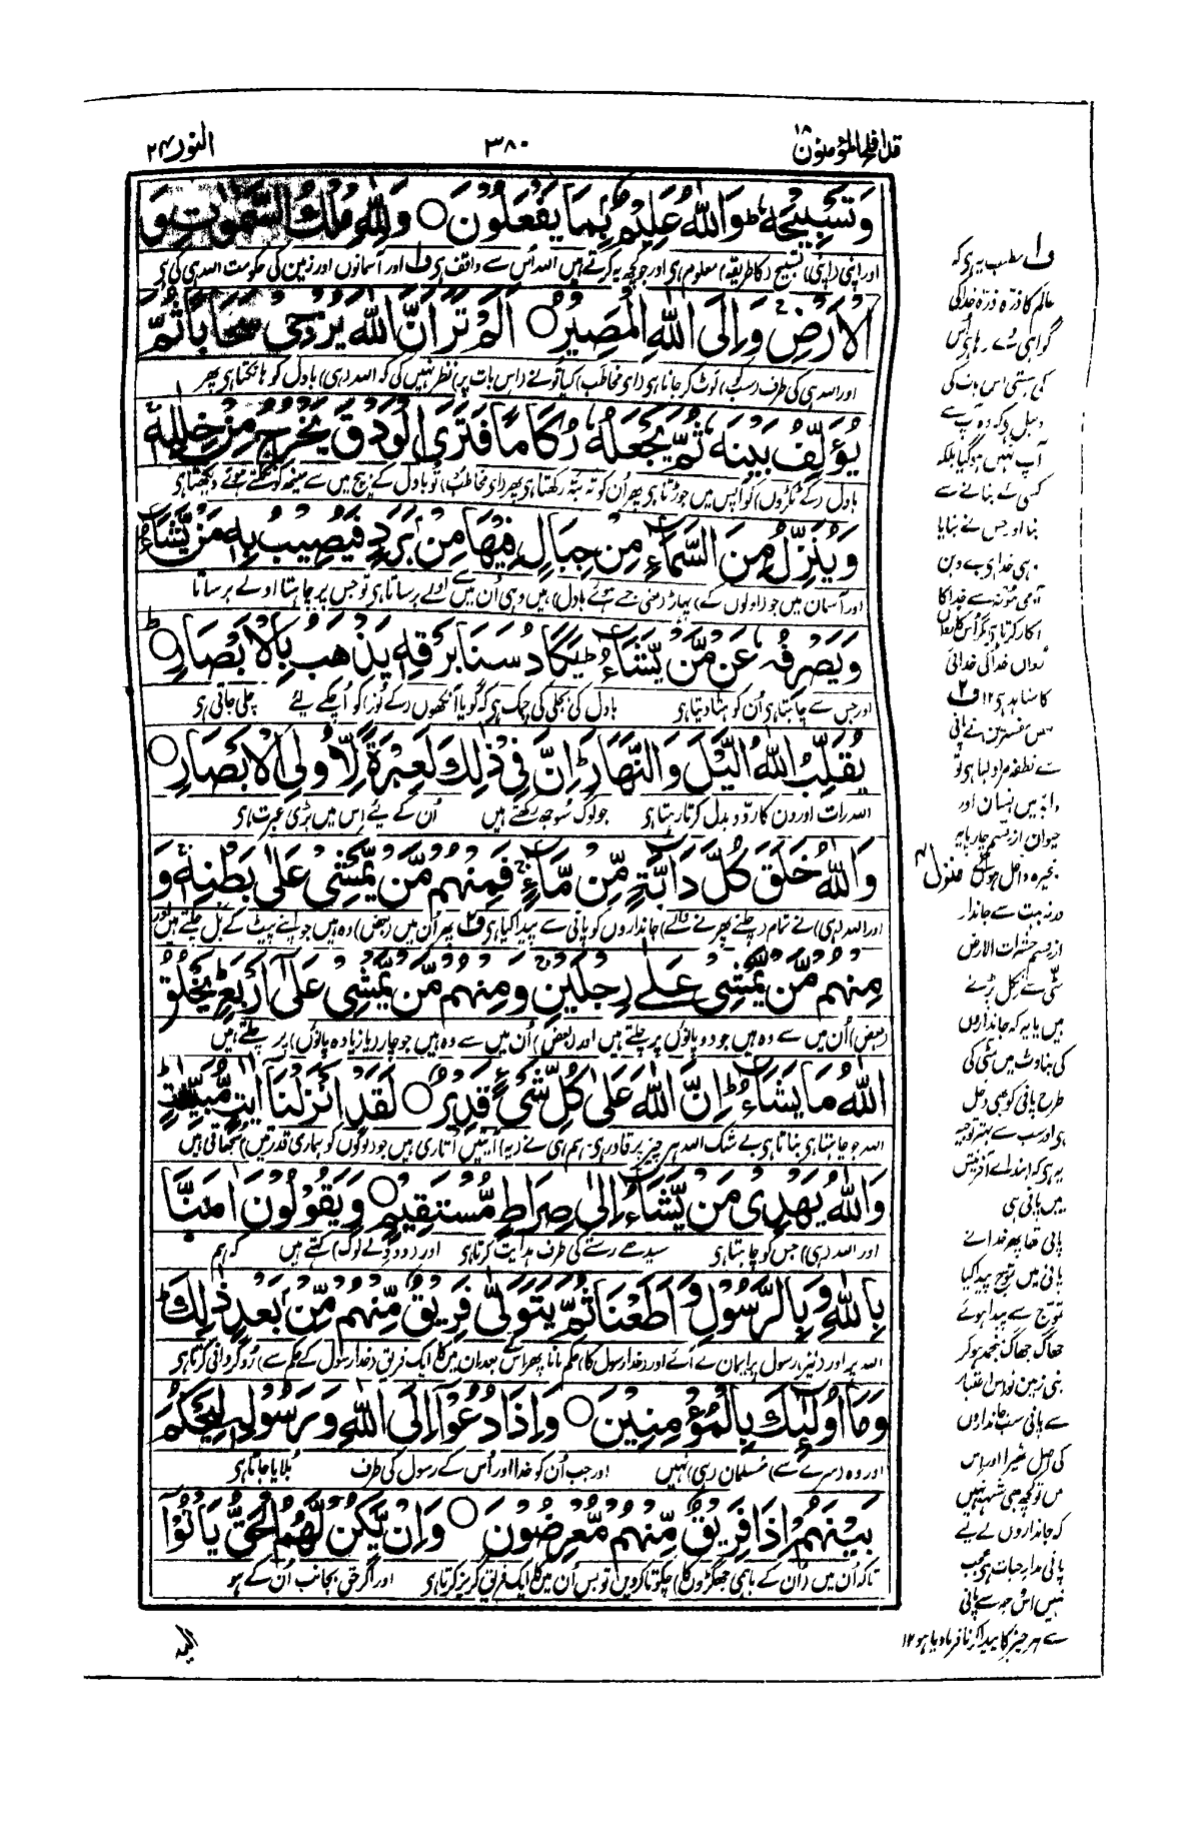 قد افلح المؤمنون ١٨
٣٨٠
النور ٢٤
وَتَسْبِيْحَهٗ ؕ وَاللّٰهُ عَلِيْمٌۢ بِمَا يَفْعَلُوْنَ ○ وَلِلّٰهِ مُلْكُ السَّمٰوٰتِ وَ
اور اپنی (اپنی) تسبیح (کا طریقہ) معلوم ہی اور جو کچھ یہ کرتے ہیں اللہ اُس سے واقف ہی ف۱ اور آسمانوں اور زمین کی حکومت اللہ ہی کی ہی
الْاَرْضِ ۚ وَاِلَى اللّٰهِ الْمَصِيْرُ ○ اَلَمْ تَرَ اَنَّ اللّٰهَ يُزْجِيْ سَحَابًا ثُمَّ
اور اللہ ہی کی طرف (سب کو) لوٹ کر جانا ہی (ای مخاطب) کیا تو نے (اس بات پر) نظر نہیں کی کہ اللہ (ہی) بادل کو ہانکتا ہی پھر
يُؤَلِّفُ بَيْنَهٗ ثُمَّ يَجْعَلُهٗ رُكَامًا فَتَرَى الْوَدْقَ يَخْرُجُ مِنْ خِلٰلِهٖ ۚ
بادل (کے ٹکڑوں) کو آپس میں جوڑتا ہی پھر اُن کو تہ بتہ رکھتا ہی پھر (ای مخاطب) تو بادل کے بیچ میں سے مینھ کو نکلتے ہوئے دیکھتا ہی
وَيُنَزِّلُ مِنَ السَّمَآءِ مِنْ جِبَالٍ فِيْهَا مِنْۢ بَرَدٍ فَيُصِيْبُ بِهٖ مَنْ يَّشَآءُ
اور آسمان میں جو (اولوں کے) پہاڑ (یعنی جمے ہوئے بادل) ہیں وہی اُن میں سے اولے برساتا ہی تو جس پر چاہتا اولے برساتا
وَيَصْرِفُهٗ عَنْ مَّنْ يَّشَآءُ ؕ يَكَادُ سَنَا بَرْقِهٖ يَذْهَبُ بِالْاَبْصَارِ ○
اور جس سے چاہتا ہی اُن کو ہٹا دیتا ہی بادل کی بجلی کی چمک ہی کہ گویا آنکھوں (کے نُور) کو اُچکے لیے چلی جاتی ہی
يُقَلِّبُ اللّٰهُ الَّيْلَ وَالنَّهَارَ ؕ اِنَّ فِيْ ذٰلِكَ لَعِبْرَةً لِّاُولِي الْاَبْصَارِ ○
اللہ رات اور دن کا ردّ و بدل کرتا رہتا ہی جو لوگ سُوجھ رکھتے ہیں اُن کے لیے اس میں بڑی عبرت ہی
وَاللّٰهُ خَلَقَ كُلَّ دَآبَّةٍ مِّنْ مَّآءٍ ۚ فَمِنْهُمْ مَّنْ يَّمْشِيْ عَلٰى بَطْنِهٖ ۚ وَ
اور اللہ (ہی) نے تمام (چلنے پھرنے والے) جانداروں کو پانی سے پیدا کیا ہی ف۲ پھر اُن میں (بعض) وہ ہیں جو اپنے پیٹ کے بل چلتے ہیں اور
مِنْهُمْ مَّنْ يَّمْشِيْ عَلٰى رِجْلَيْنِ ۚ وَمِنْهُمْ مَّنْ يَّمْشِيْ عَلٰٓى اَرْبَعٍ ؕ يَخْلُقُ
(بعض) اُن میں سے وہ ہیں جو دو پانوں پر چلتے ہیں اور (بعض) اُن میں سے وہ ہیں جو چار (یا زیادہ پانوں) پر چلتے ہیں
اللّٰهُ مَا يَشَآءُ ؕ اِنَّ اللّٰهَ عَلٰى كُلِّ شَيْءٍ قَدِيْرٌ ○ لَقَدْ اَنْزَلْنَآ اٰيٰتٍ مُّبَيِّنٰتٍ ؕ
اللہ جو چاہتا ہی بناتا ہی بے شک اللہ ہر چیز پر قادر ہی ہم ہی نے (یہ) آیتیں اُتاری ہیں جو (لوگوں کو ہماری قدرتیں) سُجھاتی ہیں
وَاللّٰهُ يَهْدِيْ مَنْ يَّشَآءُ اِلٰى صِرَاطٍ مُّسْتَقِيْمٍ ○ وَيَقُوْلُوْنَ اٰمَنَّا
اور اللہ (ہی) جس کو چاہتا ہی سیدھے رستے کی طرف ہدایت کرتا ہی اور (دو دِلے لوگ) کہتے ہیں کہ ہم
بِاللّٰهِ وَبِالرَّسُوْلِ وَاَطَعْنَا ثُمَّ يَتَوَلّٰى فَرِيْقٌ مِّنْهُمْ مِّنْۢ بَعْدِ ذٰلِكَ ؕ
اللہ پر اور (نیز) رسول پر ایمان لے آئے اور (خدا رسول کا) حکم مانا پھر اس کے بعد ان میں کا ایک فریق (خدا رسول کے حکم سے) رُوگردانی کرتا ہی
وَمَآ اُولٰٓئِكَ بِالْمُؤْمِنِيْنَ ○ وَاِذَا دُعُوْٓا اِلَى اللّٰهِ وَرَسُوْلِهٖ لِيَحْكُمَ
اور وہ (سرے سے) مُسلمان (ہی) نہیں اور جب اُن کو خدا اور اُس کے رسول کی طرف بُلایا جاتا ہی
بَيْنَهُمْ اِذَا فَرِيْقٌ مِّنْهُمْ مُّعْرِضُوْنَ ○ وَاِنْ يَّكُنْ لَّهُمُ الْحَقُّ يَاْتُوْٓا
تاکہ اُن میں (اُن کے باہمی جھگڑوں کا) چکوتا کر دیں تو بس اُن میں کا ایک فریق گریز کرتا ہی اور اگر حق بجانب اُن کے ہو
الیہ
ف۱ مطلب یہ ہی کہ
عالم کا ذرّہ ذرّہ خدا کی
گواہی دے رہا ہی اُس
کی ہستی اس بات کی
دلیل ہی کہ وہ آپ سے
آپ نہیں ہو گیا بلکہ
کسی کے بنانے سے
بنا اور جس نے بنایا
وہی خدا ہی بے دین
آدمی مُونہ سے خدا کا
انکار کرتا ہی مگر اُس کا
رُواں رُواں خدا کی خدائی
کا شاہد ہی ۱۲ ف۲
بعض مفسرین نے پانی
سے نطفہ مراد لیا ہی تو
دابّہ میں انسان اور
حیوان از قسم چارپایہ
وغیرہ داخل ہوں گے
منزل ۴
ورنہ بہت سے جاندار
از قسم حشرات الارض
مٹی سے نکل پڑتے
ہیں یا یہ کہ جانداروں
کی بناوٹ میں مٹی کی
طرح پانی کو بھی دخل
ہی اور سب سے بہتر توجیہ
یہ ہی کہ ابتدائے آفرینش
میں پانی ہی
پانی تھا پھر خدا نے
پانی میں تموّج پیدا کیا
تموّج سے پیدا ہوئے
جھاگ جھاگ منجمد ہو کر
بنی زمین تو اس اعتبار
سے پانی سب جانداروں
کی اصل ٹھیرا اور اس
میں تو کچھ بھی شبہہ نہیں
کہ جانداروں کے لیے
پانی مدار حیات ہی عجب
نہیں اس وجہ سے پانی
سے ہر چیز کا پیدا کرنا فرما دیا ہو ۱۲